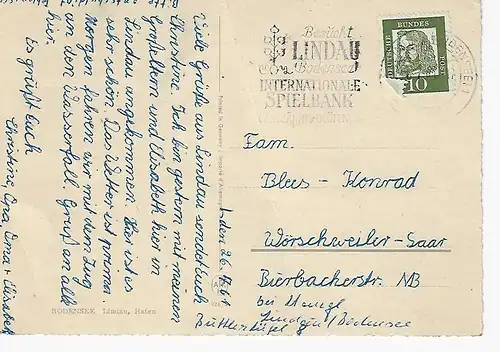 Viele Grüße aus Lindau sendet Euch
Christine. Ich bin gestern mit meinen
Großeltern und Elisabeth hier in
Lindau angekommen. Hier ist es
sehr schön. Das Wetter ist prima.
Morgen fahren wir mit dem Zug
an den Wasserfall. Gruß an alle
hier.
Es grüßt Euch
Christine, Opa, Oma + Elisabeth
Bitte
BODENSEE Lindau, Hafen
Printed in Germany
Besucht
LINDAU
Bodensee
INTERNATIONALE
SPIELBANK
DEUTSCHE BUNDES POST
10
Fam.
Blees - Konrad
Wörschweiler-Saar
Bierbacherstr. NB
bei
Lindau/Bodensee